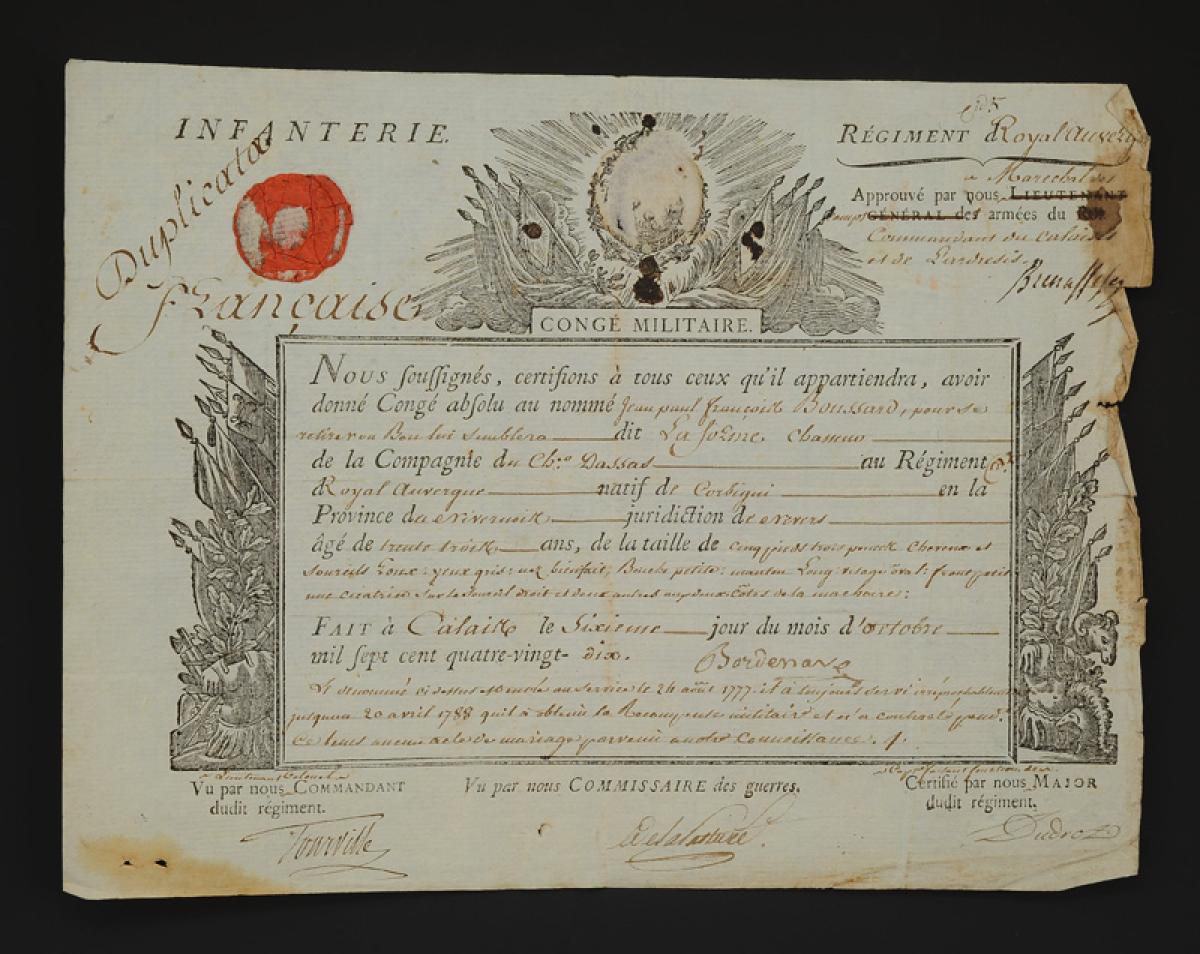 INFANTERIE.
Duplicata
Française
RÉGIMENT d Royal Auver
a Marechal des
Approuvé par nous LIEUTENANT
camps GÉNÉRAL des armées du
Commandant du Calaisis
et de L'ardresis.
CONGÉ MILITAIRE.
Nous soussignés, certifions à tous ceux qu'il appartiendra, avoir
donné Congé absolu au nommé Jean paul françois Boussard, pour se
retirer ou Bon lui Semblera dit La forme Chasseur
de la Compagnie du Ch.er Dassas au Régiment
d Royal Auvergne natif de Corbigni en la
Province du Nivernois juridiction de Nevers
âgé de trente trois ans, de la taille de cinq pieds trois pouces Cheveux et
Sourcils Roux: yeux gris: nez bienfait, Bouche petite: manton Long: visage oval: front petit
une cicatrice Sur le Sourcil droit et deux autres aux deux Côtés de la machoire:
FAIT à Calais le Sixieme jour du mois d'octobre
mil sept cent quatre-vingt-dix. Bordenave
Le denommé ci dessus au service le 26 août 1777. et à toujours servi irréprochablement
jusqu'au 20 avril 1788 qu'il à obtenu la Recompense militaire et n'a contracté pend.t
Ce tems aucun acte de mariage parvenu a notre Connoissance.
a Lieutenant Colonel
Vu par nous COMMANDANT
dudit régiment.
Tourville
Vu par nous COMMISSAIRE des guerres.
a Cap.ne faisant fonction de
Certifié par nous MAJOR
dudit régiment.
Dudrot